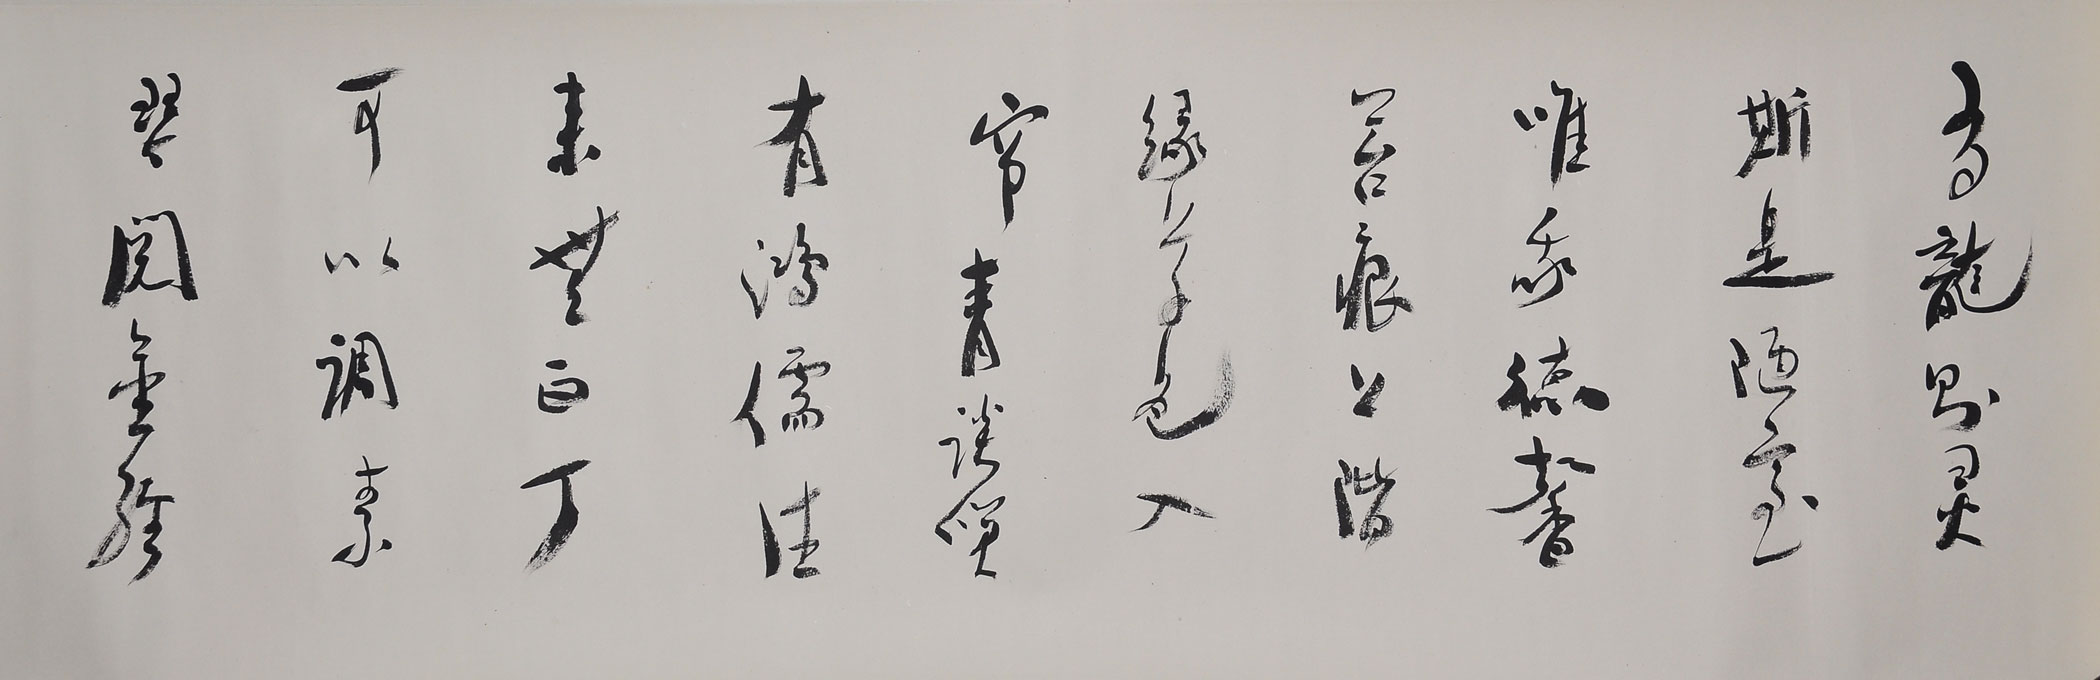 有龍則灵
斯是陋室
唯我德馨
苔痕上階
緑草色入
帘青談笑
有鴻儒往
来無白丁
可以調素
琴閲金經